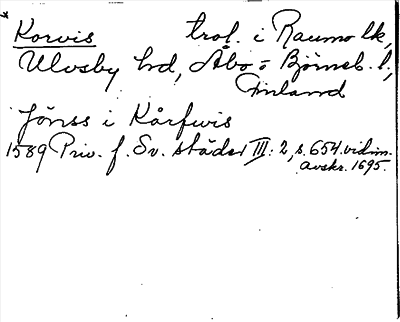 Korvis trol. i Raumo lk,
Ulvsby hd, Åbo = Björneb. l,
Finland
Jönss i Kårfwis
1589 Priv. f. Sv. städer III: 2, s. 654. vidim.
avskr. 1695.